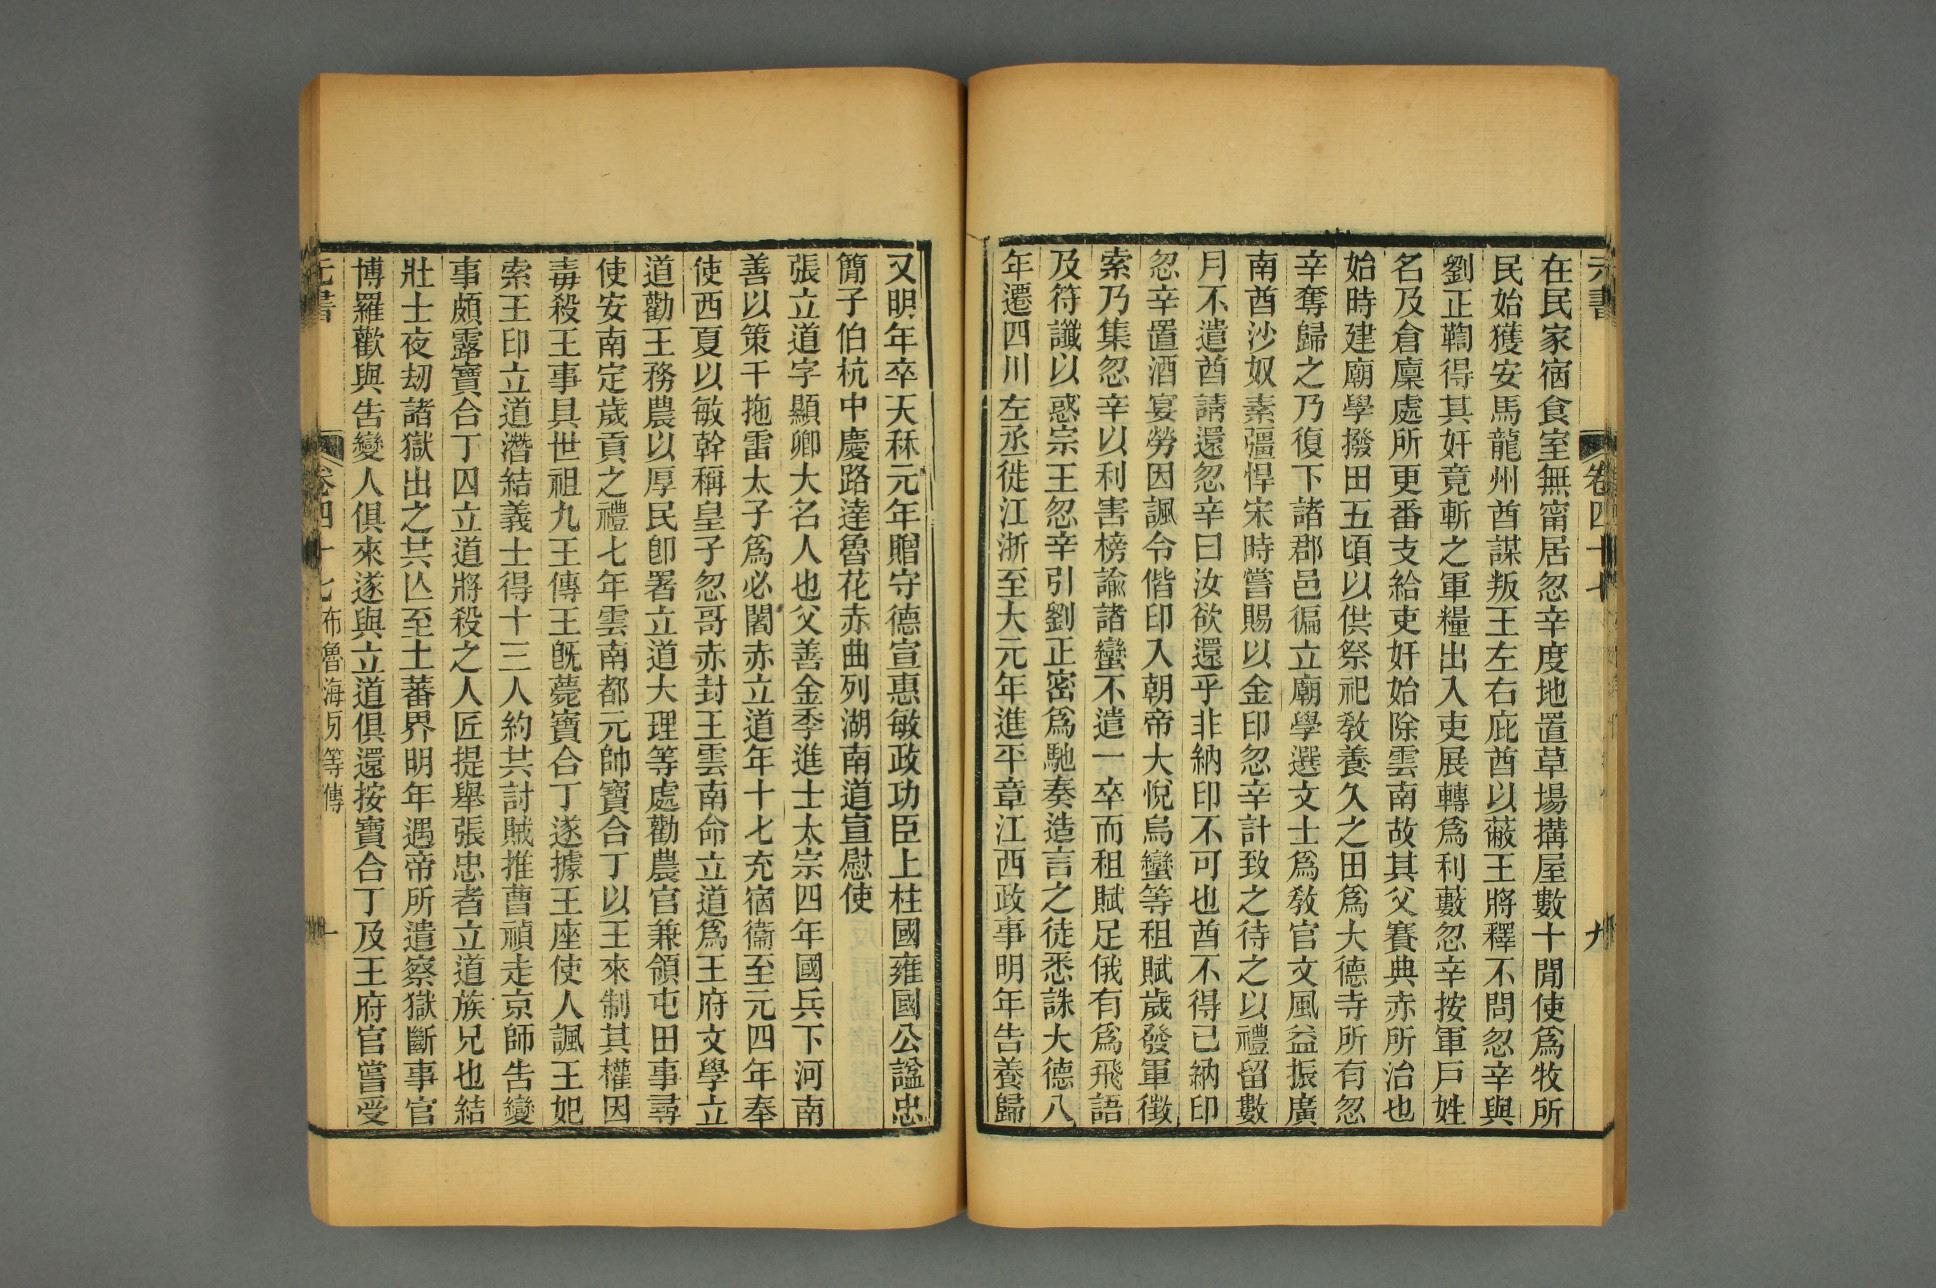 元書 卷四十七 九
在民家宿食室無甯居忽辛度地置草場搆屋數十間使爲牧所
民始獲安馬龍州酋謀叛王左右庇酋以蔽王將釋不問忽辛與
劉正鞫得其奸竟斬之軍糧出入吏展轉爲利藪忽辛按軍戶姓
名及倉廩處所更番支給吏奸始除雲南故其父賽典赤所治也
始時建廟學撥田五頃以供祭祀敎養久之田爲大德寺所有忽
辛奪歸之乃復下諸郡邑徧立廟學選文士爲敎官文風益振廣
南酋沙奴素彊悍宋時嘗賜以金印忽辛計致之待之以禮留數
月不遣酋請還忽辛曰汝欲還乎非納印不可也酋不得已納印
忽辛置酒宴勞因諷令偕印入朝帝大悅烏蠻等租賦歲發軍徵
索乃集忽辛以利害榜諭諸蠻不遣一卒而租賦足俄有爲飛語
及符讖以惑宗王忽辛引劉正密爲馳奏造言之徒悉誅大德八
年遷四川左丞徙江浙至大元年進平章江西政事明年告養歸
又明年卒天秝元年贈守德宣惠敏政功臣上柱國雍國公諡忠
簡子伯杭中慶路達魯花赤曲列湖南道宣慰使
張立道字顯卿大名人也父善金季進士太宗四年國兵下河南
善以策干拖雷太子爲必闍赤立道年十七充宿衞至元四年奉
使西夏以敏幹稱皇子忽哥赤封王雲南命立道爲王府文學立
道勸王務農以厚民卽署立道大理等處勸農官兼領屯田事尋
使安南定歲貢之禮七年雲南都元帥寶合丁以王來制其權因
毒殺王事具世祖九王傳王旣薨寶合丁遂據王座使人諷王妃
索王印立道潛結義士得十三人約共討賊推曹禎走京師告變
事頗露寶合丁囚立道將殺之人匠提舉張忠者立道族兄也結
壯士夜劫諸獄出之共亾至土蕃界明年遇帝所遣察獄斷事官
博羅歡與告變人俱來遂與立道俱還按寶合丁及王府官嘗受
元書 卷四十七 布魯海牙等傳